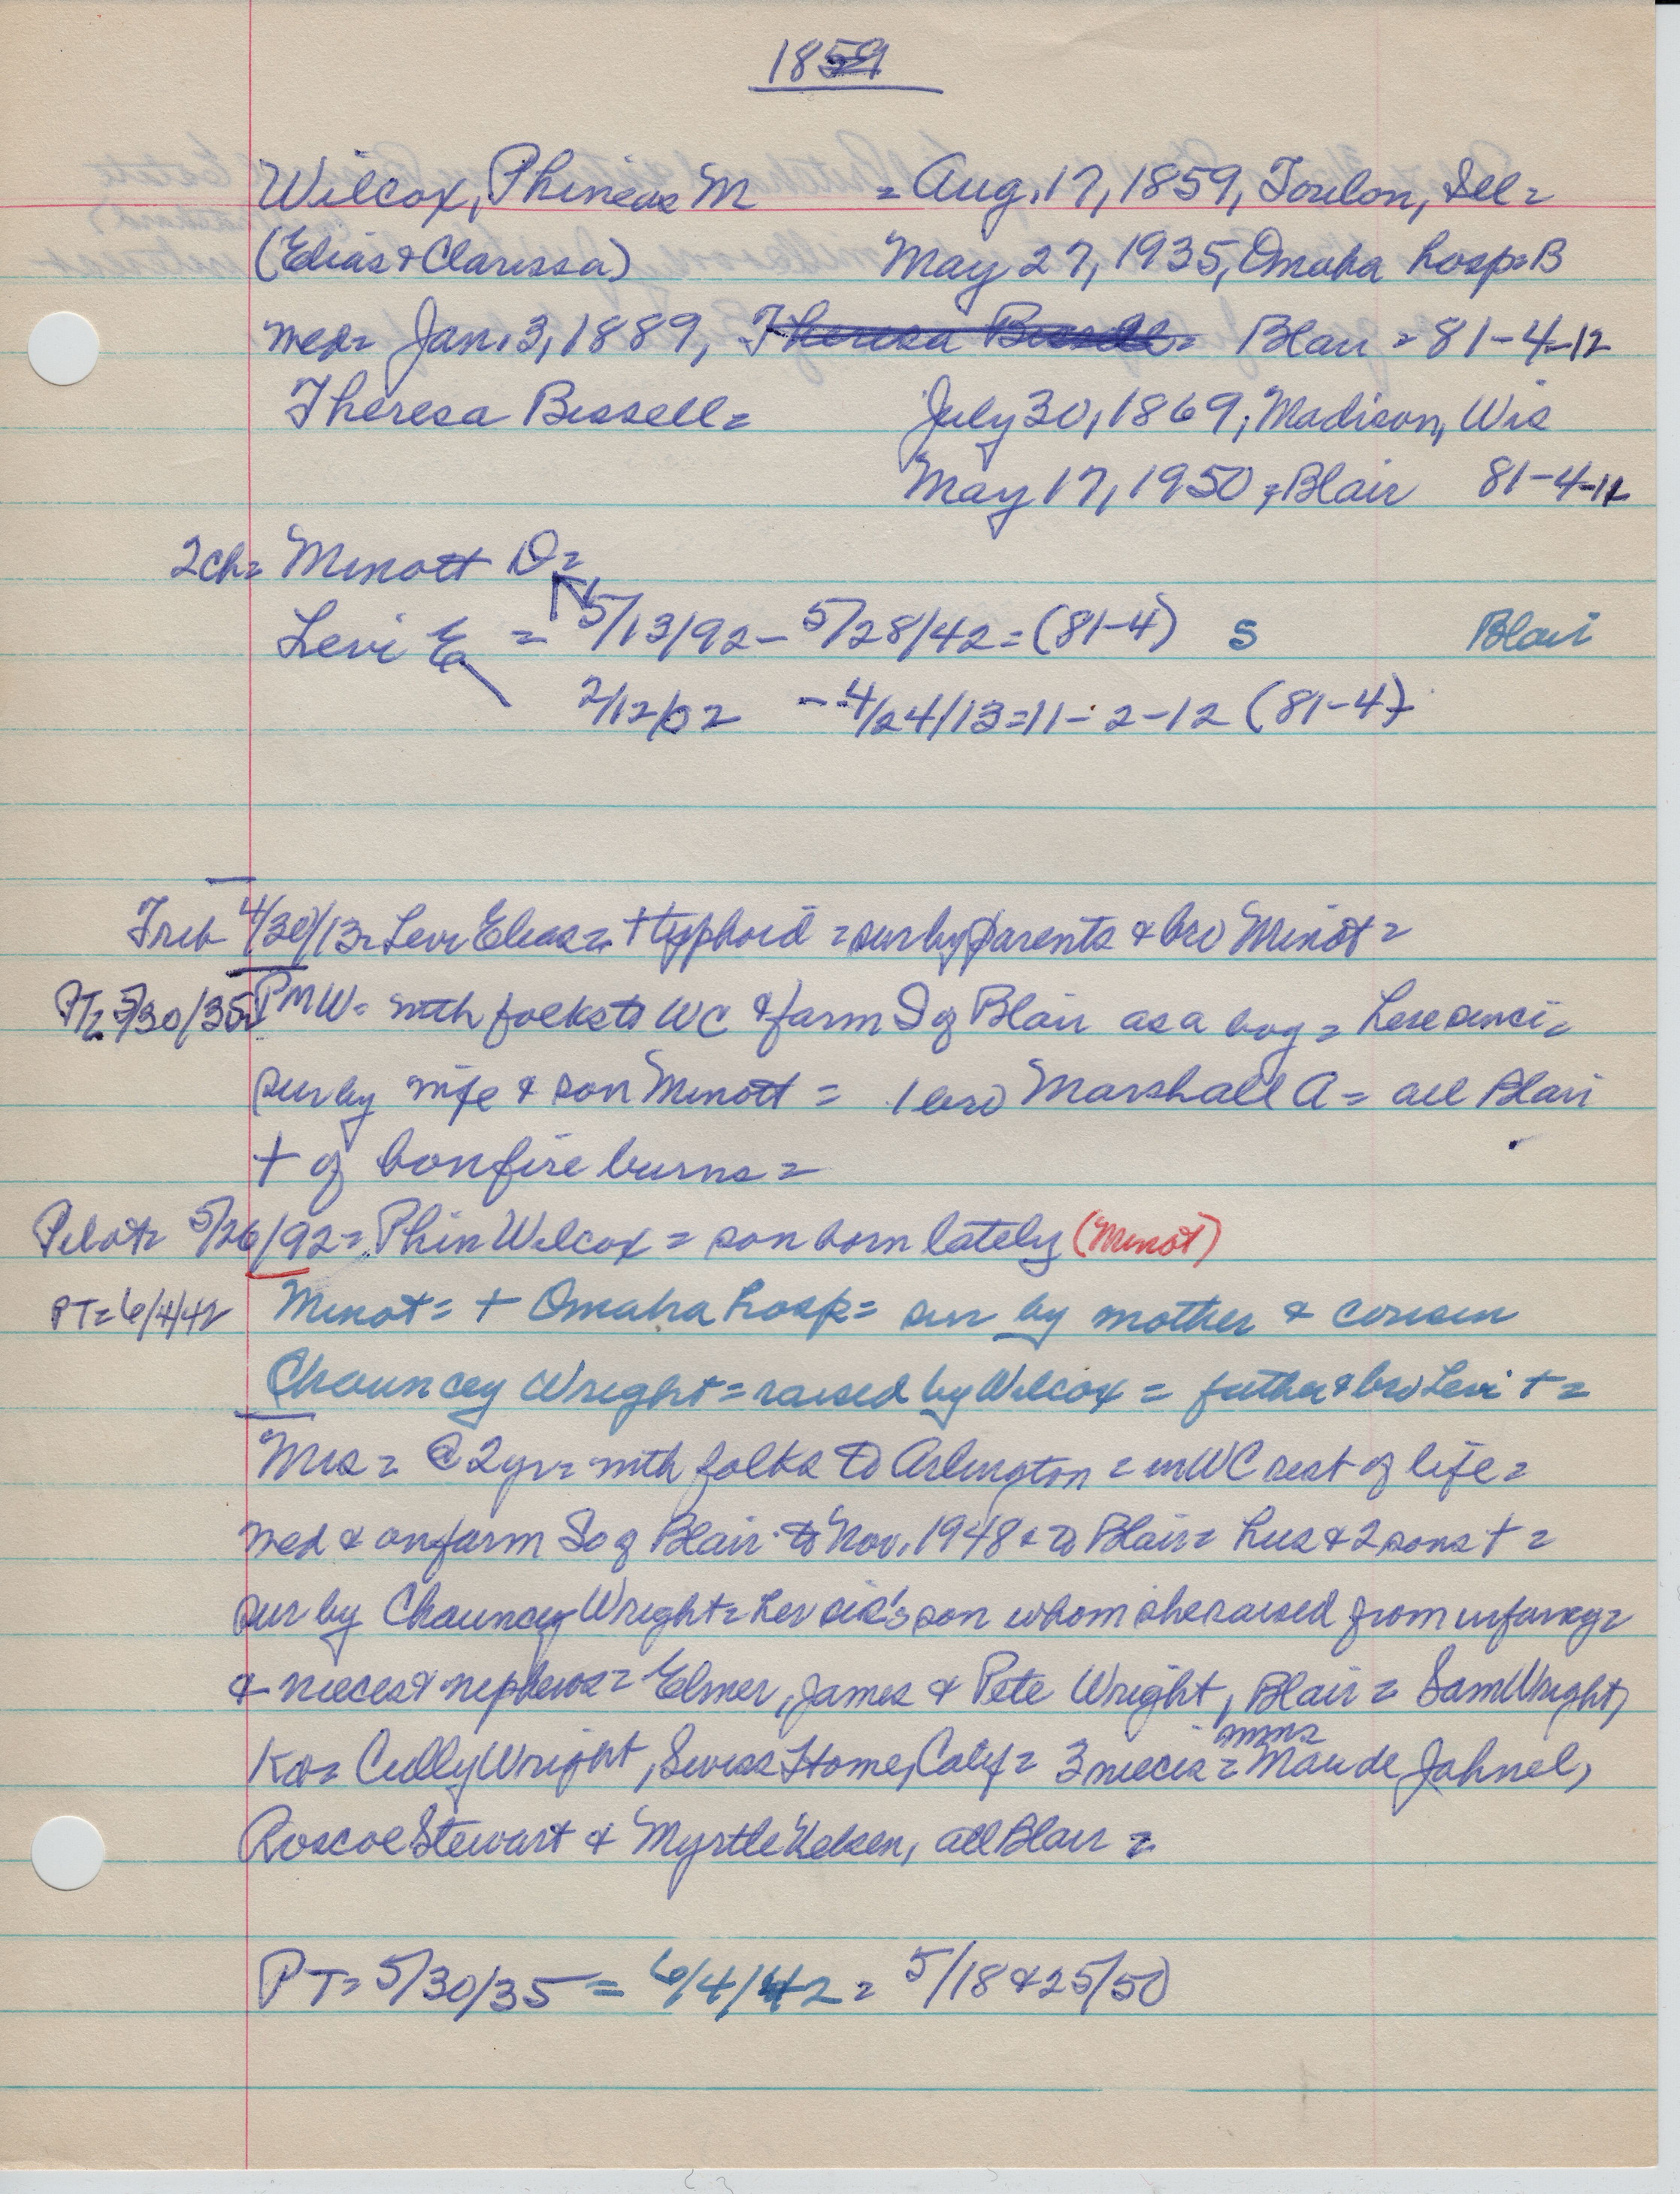 1859
Wilcox, Phineas M = Aug. 17, 1859, Toulon, Ill =
(Elias & Clarissa) May 27, 1935, Omaha hosp = B
med = Jan. 3, 1889, Theresa Bissell = Blair = 81-4-12
Theresa Bissell = July 30, 1869, Madison, Wis
May 17, 1950, Blair 81-4-11
2ch = Minott D =
Levi E = 5/13/92 - 5/28/42 = (81-4) S Blair
2/12/02 - 4/24/13 = 11-2-12 (81-4)
Trib 4/30/13 = Levi Elias = + typhoid = sur by parents & bro Minot =
PT = 5/30/35 = PMW = with folks to WC & farm S of Blair as a boy = here since =
sur by wife & son Minott = 1 bro Marshall A = all Blair
+ of bonfire burns =
Pilot = 5/26/92 = Phin Wilcox = son born lately (Minot)
PT = 6/4/42 Minot = + Omaha hosp = sur by mother & cousin
Chauncey Wright = raised by Wilcox = father & bro Levi + =
Mrs = @ 2 yr = with folks to Arlington = in WC rest of life =
med & on farm So of Blair to Nov. 1948 & to Blair = hus & 2 sons + =
sur by Chauncey Wright = her sis's son whom she raised from infancy =
& nieces & nephews = Elmer, James & Pete Wright, Blair = Sam Wright,
Ks = Cully Wright, Swiss Home, Calif = 3 nieces = mms Maude Jahnel,
Roscoe Stewart & Myrtle, all Blair =
PT = 5/30/35 = 6/4/42 = 5/18 & 25/50